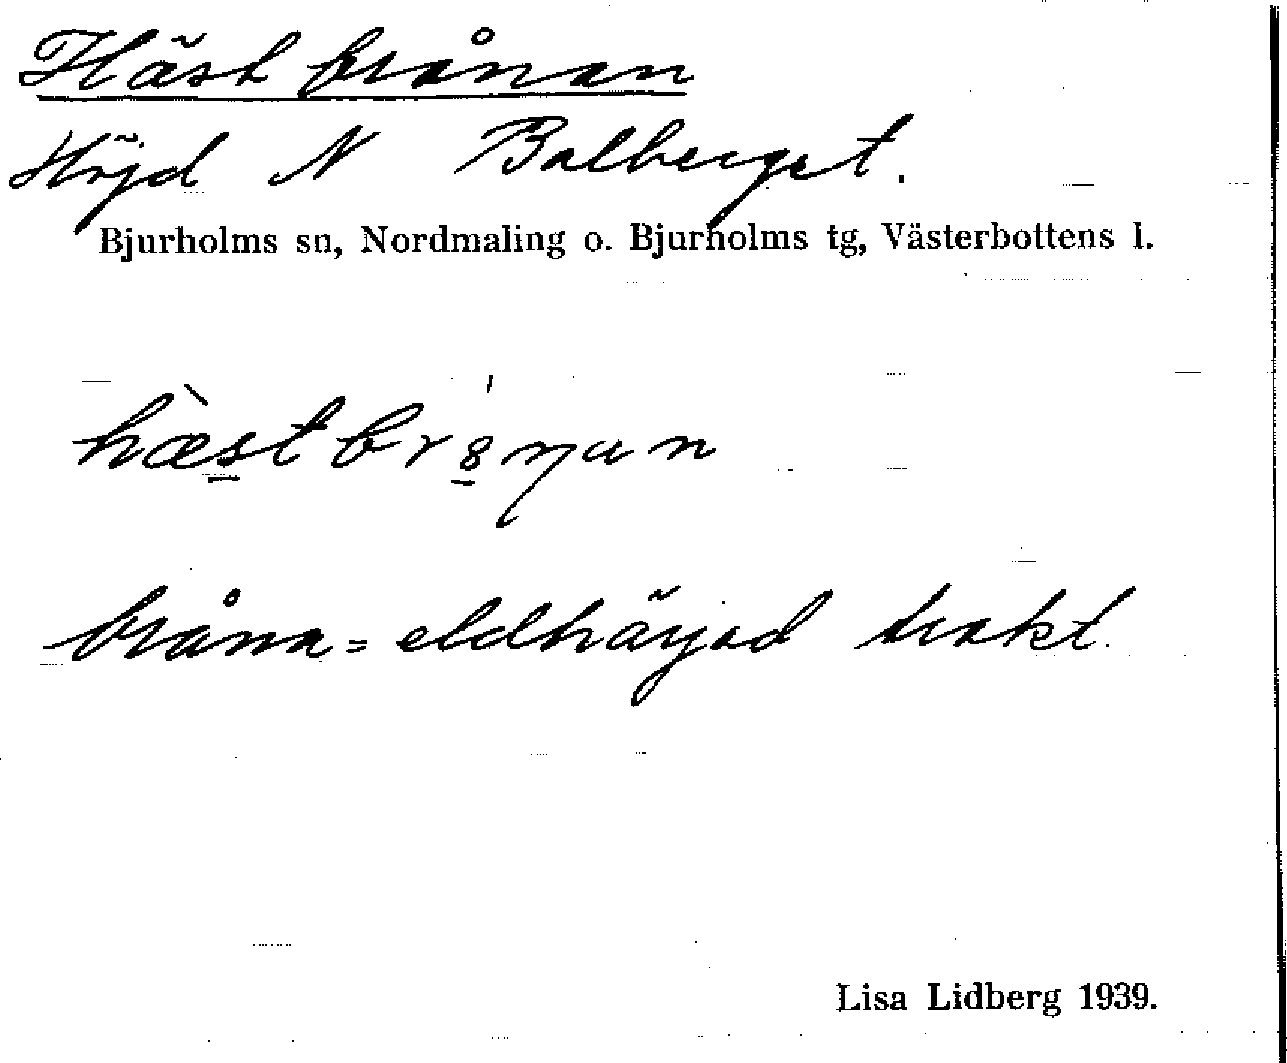 Hästbrånan
Höjd N Balberget.
Bjurholms sn, Nordmaling o. Bjurholms tg, Västerbottens l.
hæ̀stbr8ŋan
bråna = eldhärjad trakt.
Lisa Lidberg 1939.